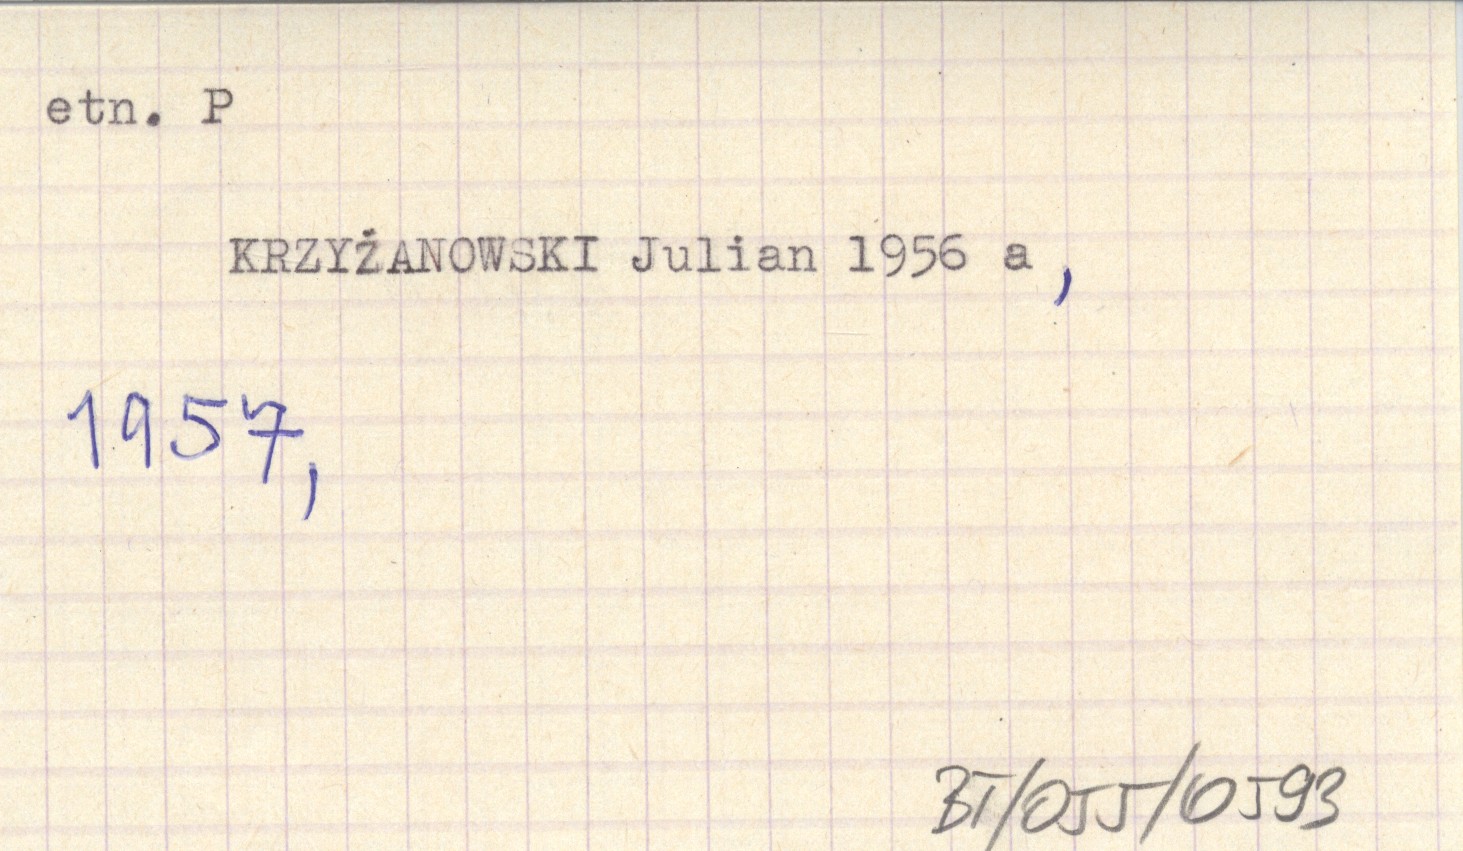 etn. P
KRZYŻANOWSKI Julian 1956 a,
1957,
BT/055/0593